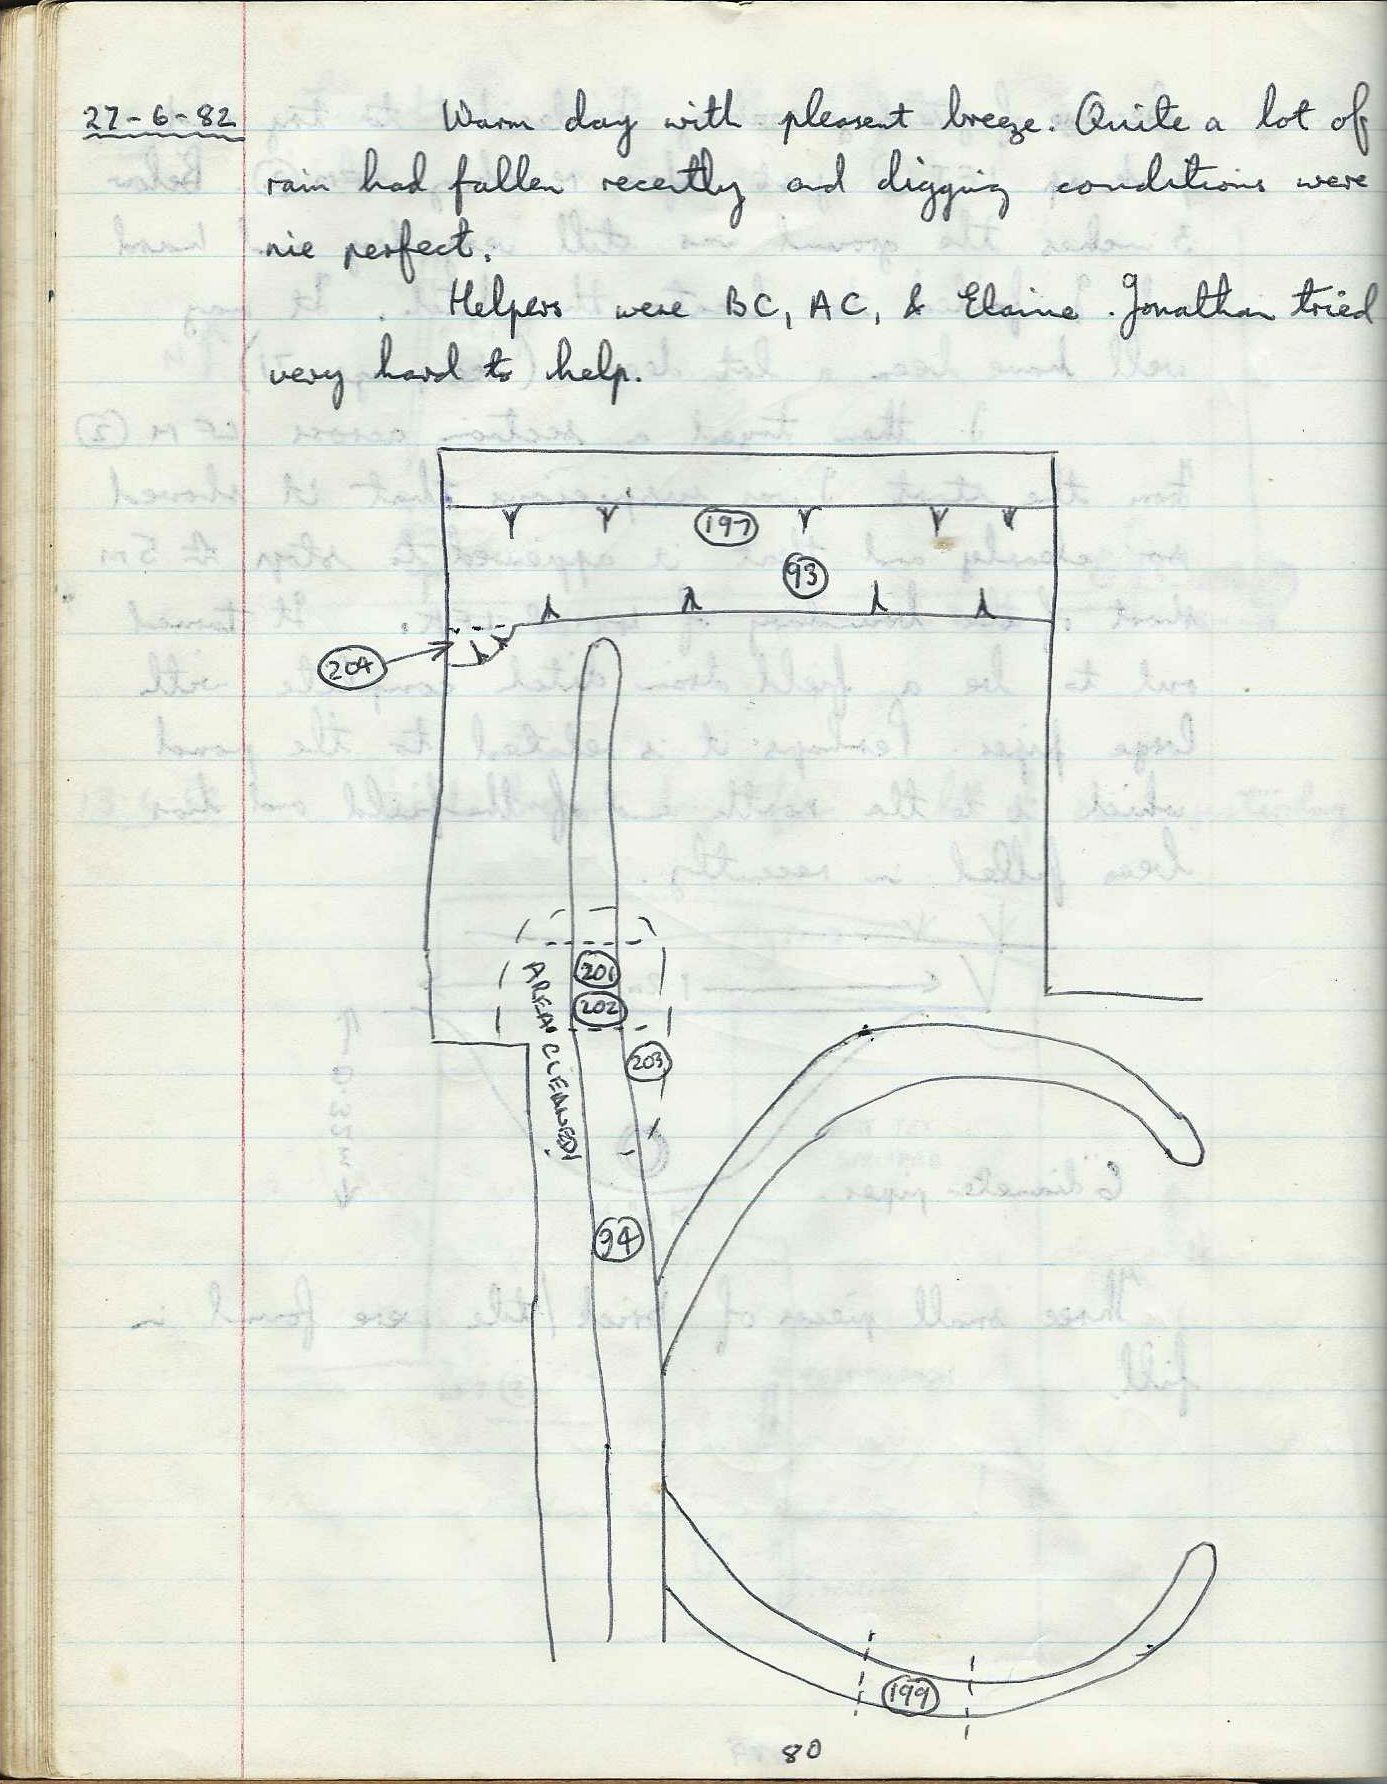 27-6-82 Warm day with pleasent breeze. Quite a lot of
rain had fallen recently and digging conditions were
nie perfect.
Helpers were BC, AC, & Elaine. Jonathan tried
very hard to help.
197
93
204
201
202
AREA CLEANED
203
94
199
80